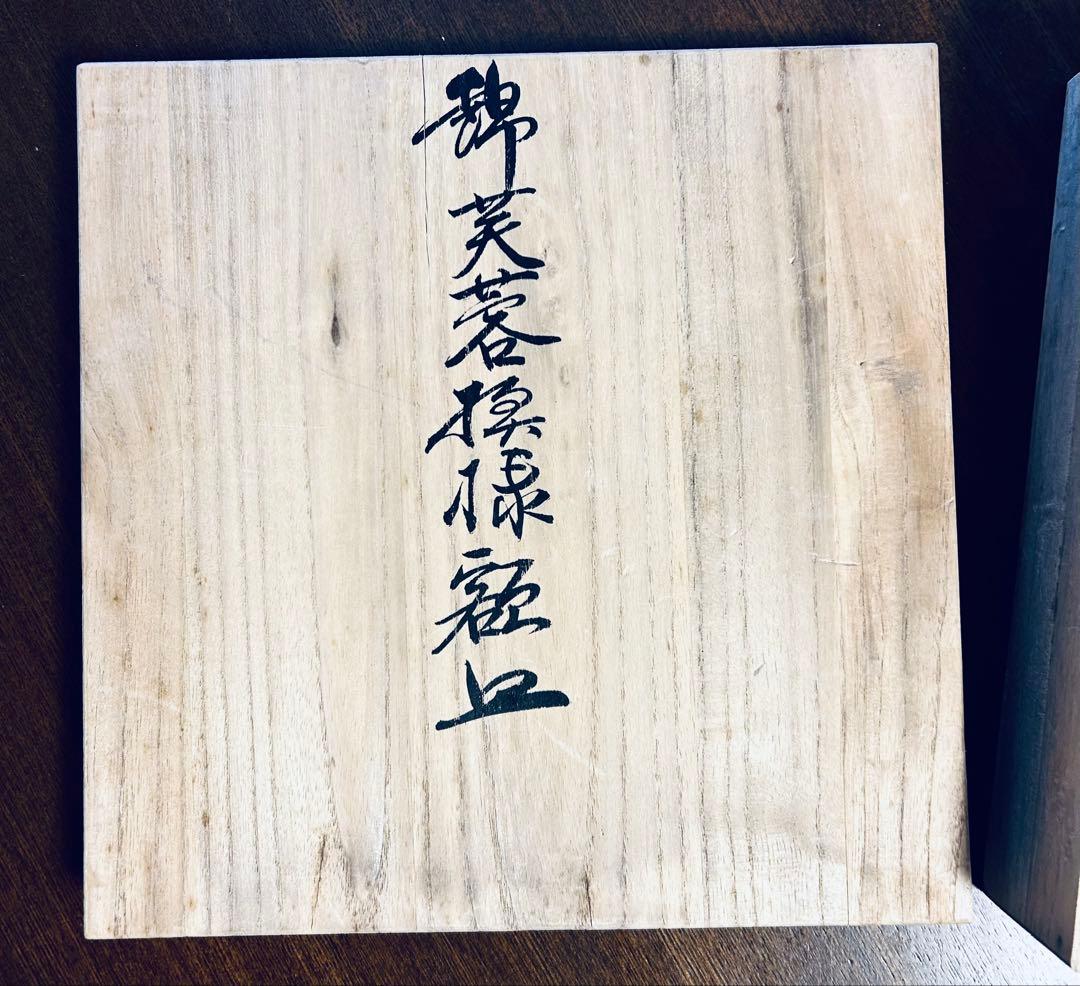 錦芙蓉模様額皿